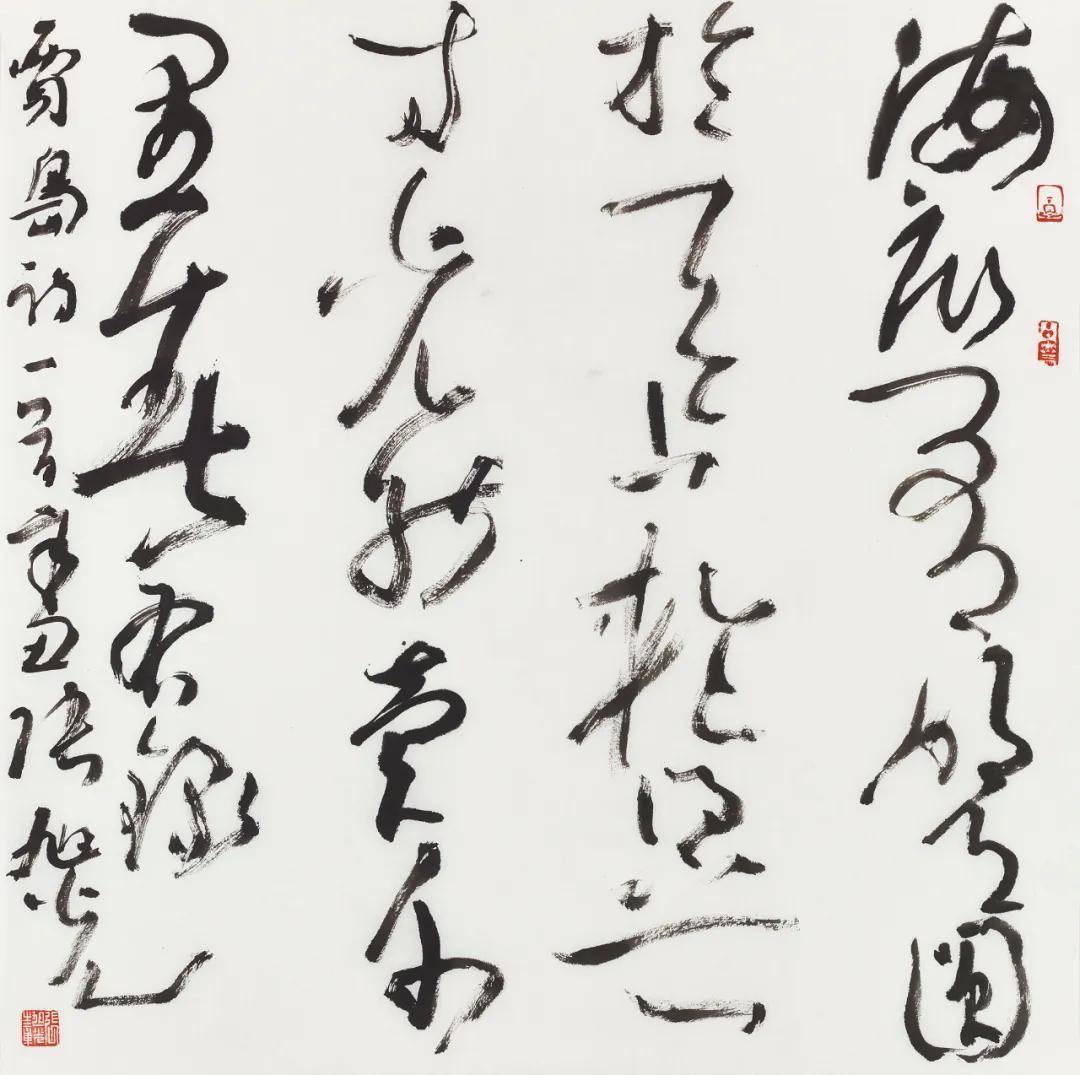 海底有明月圓
於天上輪得之一
寸光買千
里春右錄
賈島詩一首辛丑張旭光